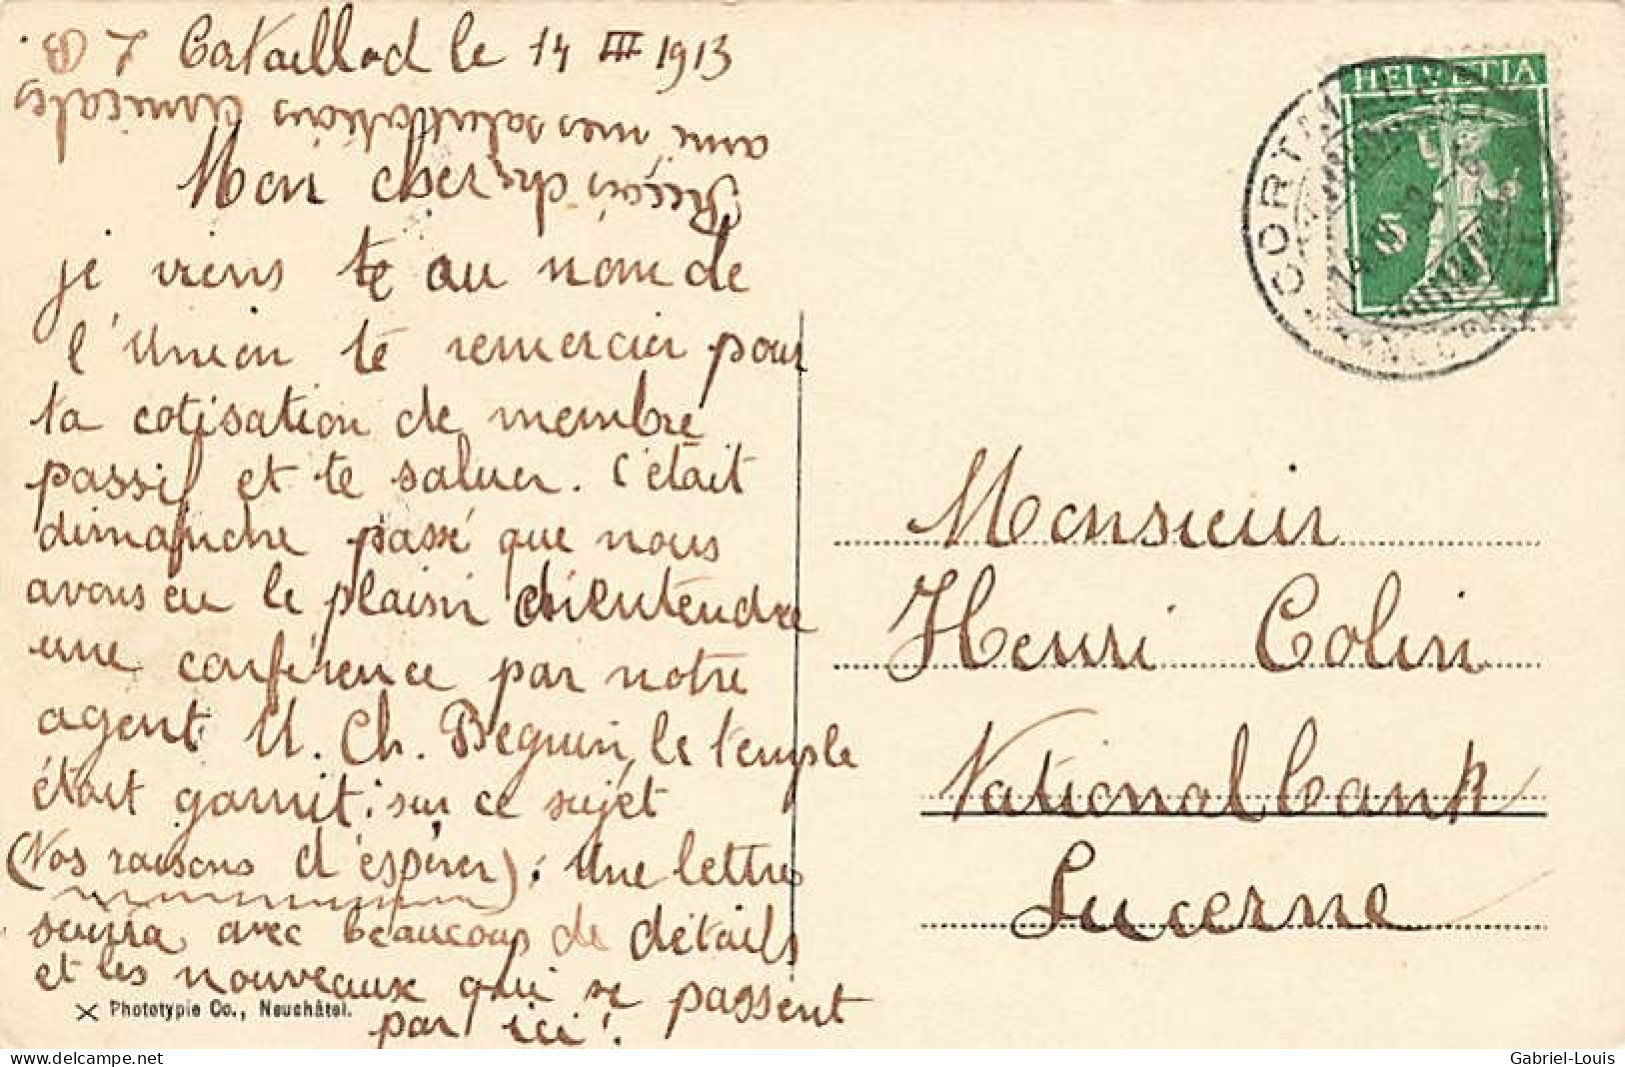 Cortaillod le 14 III 1913
Mon cher
je viens te au nom de
l'Union te remercier pour
ta cotisation de membre
passif et te saluer. C'était
dimanche passé que nous
avons eu le plaisir d'entendre
une conférence par notre
agent M. Ch. Beguin, le temple
était garnit; sur ce sujet
(Nos raisons d'espérer); Une lettre
suivra avec beaucoup de détails
et les nouveaux qui se passent
par ici!
Reçois cher
ami mes salutations amicales
Phototypie Co., Neuchâtel.
HELVETIA
5
CORTAILLOD
Monsieur
Henri Colin
Nationalbank
Lucerne
www.delcampe.net
Gabriel-Louis